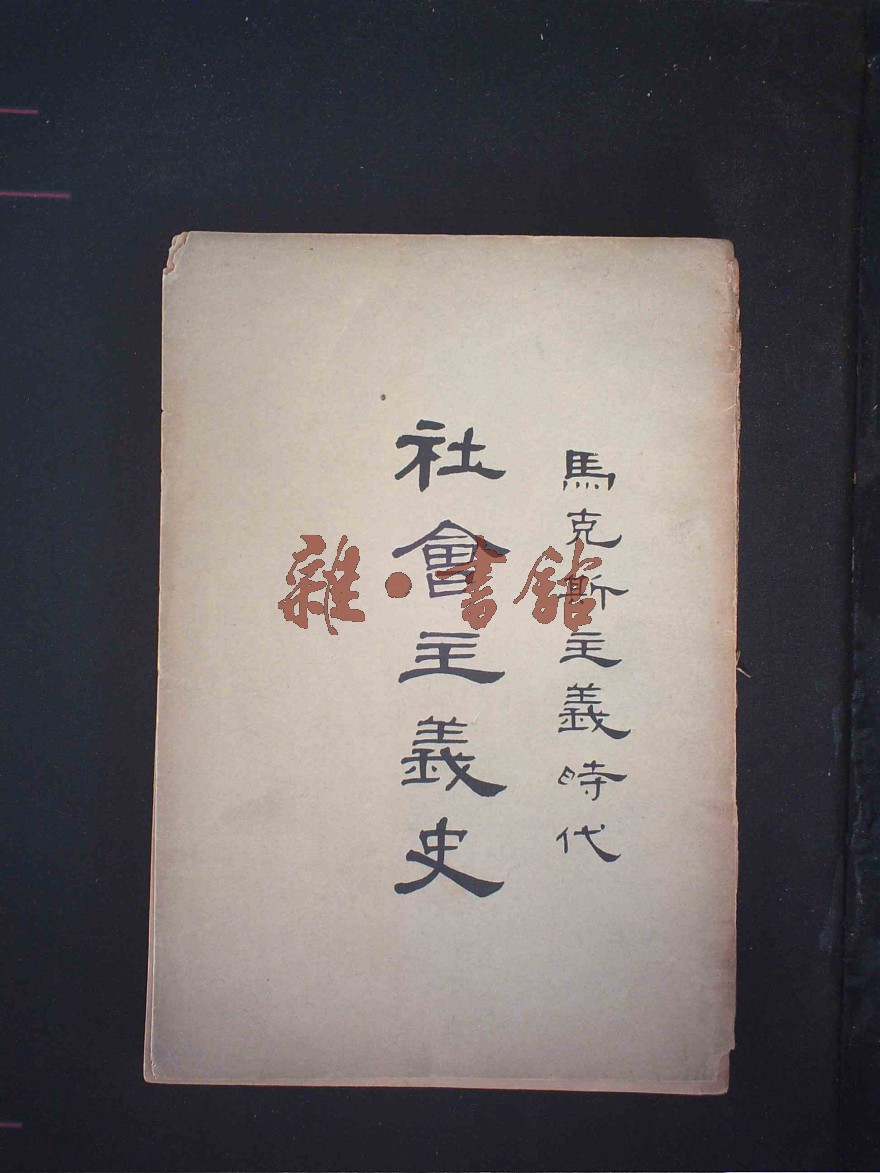 馬克斯主義時代
社會主義史
雜·書館